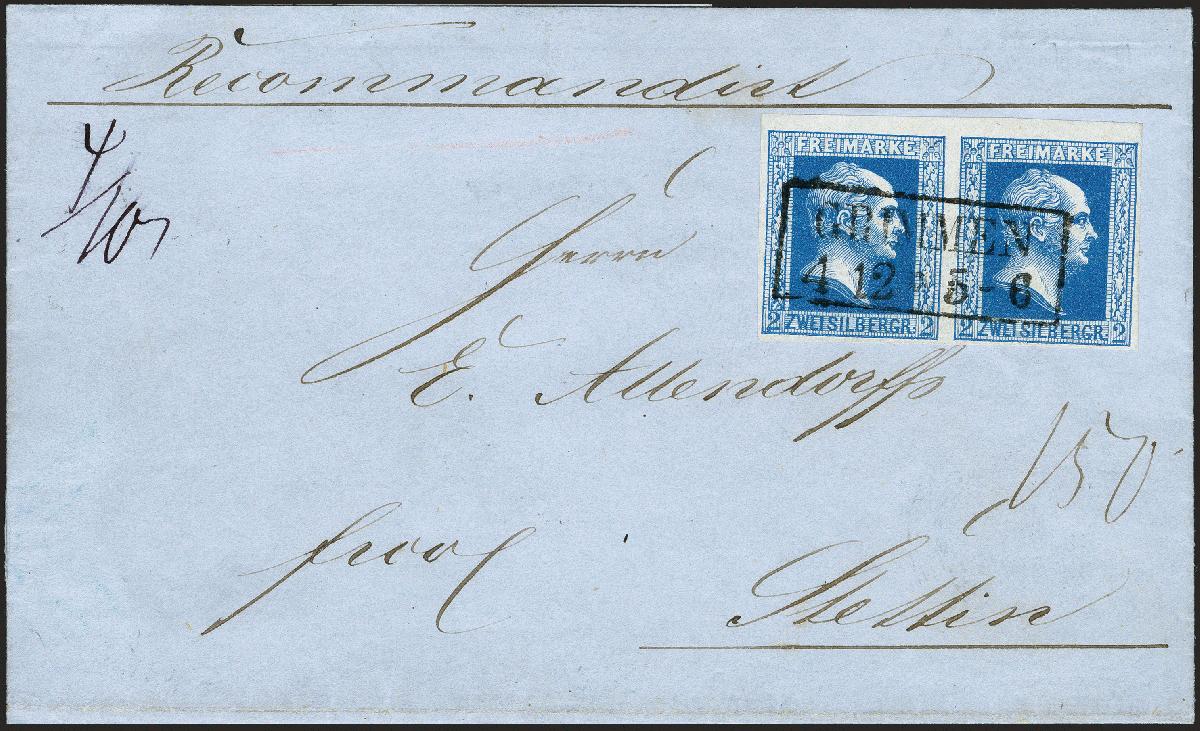 Recommandirt
4/10
FREIMARKE FREIMARKE
GRIMMEN
4 12 * 5 - 6
2 ZWEI SILBERGR. 2 2 ZWEI SILBERGR. 2
Herrn
E. Allendorff
150
franco
Stettin